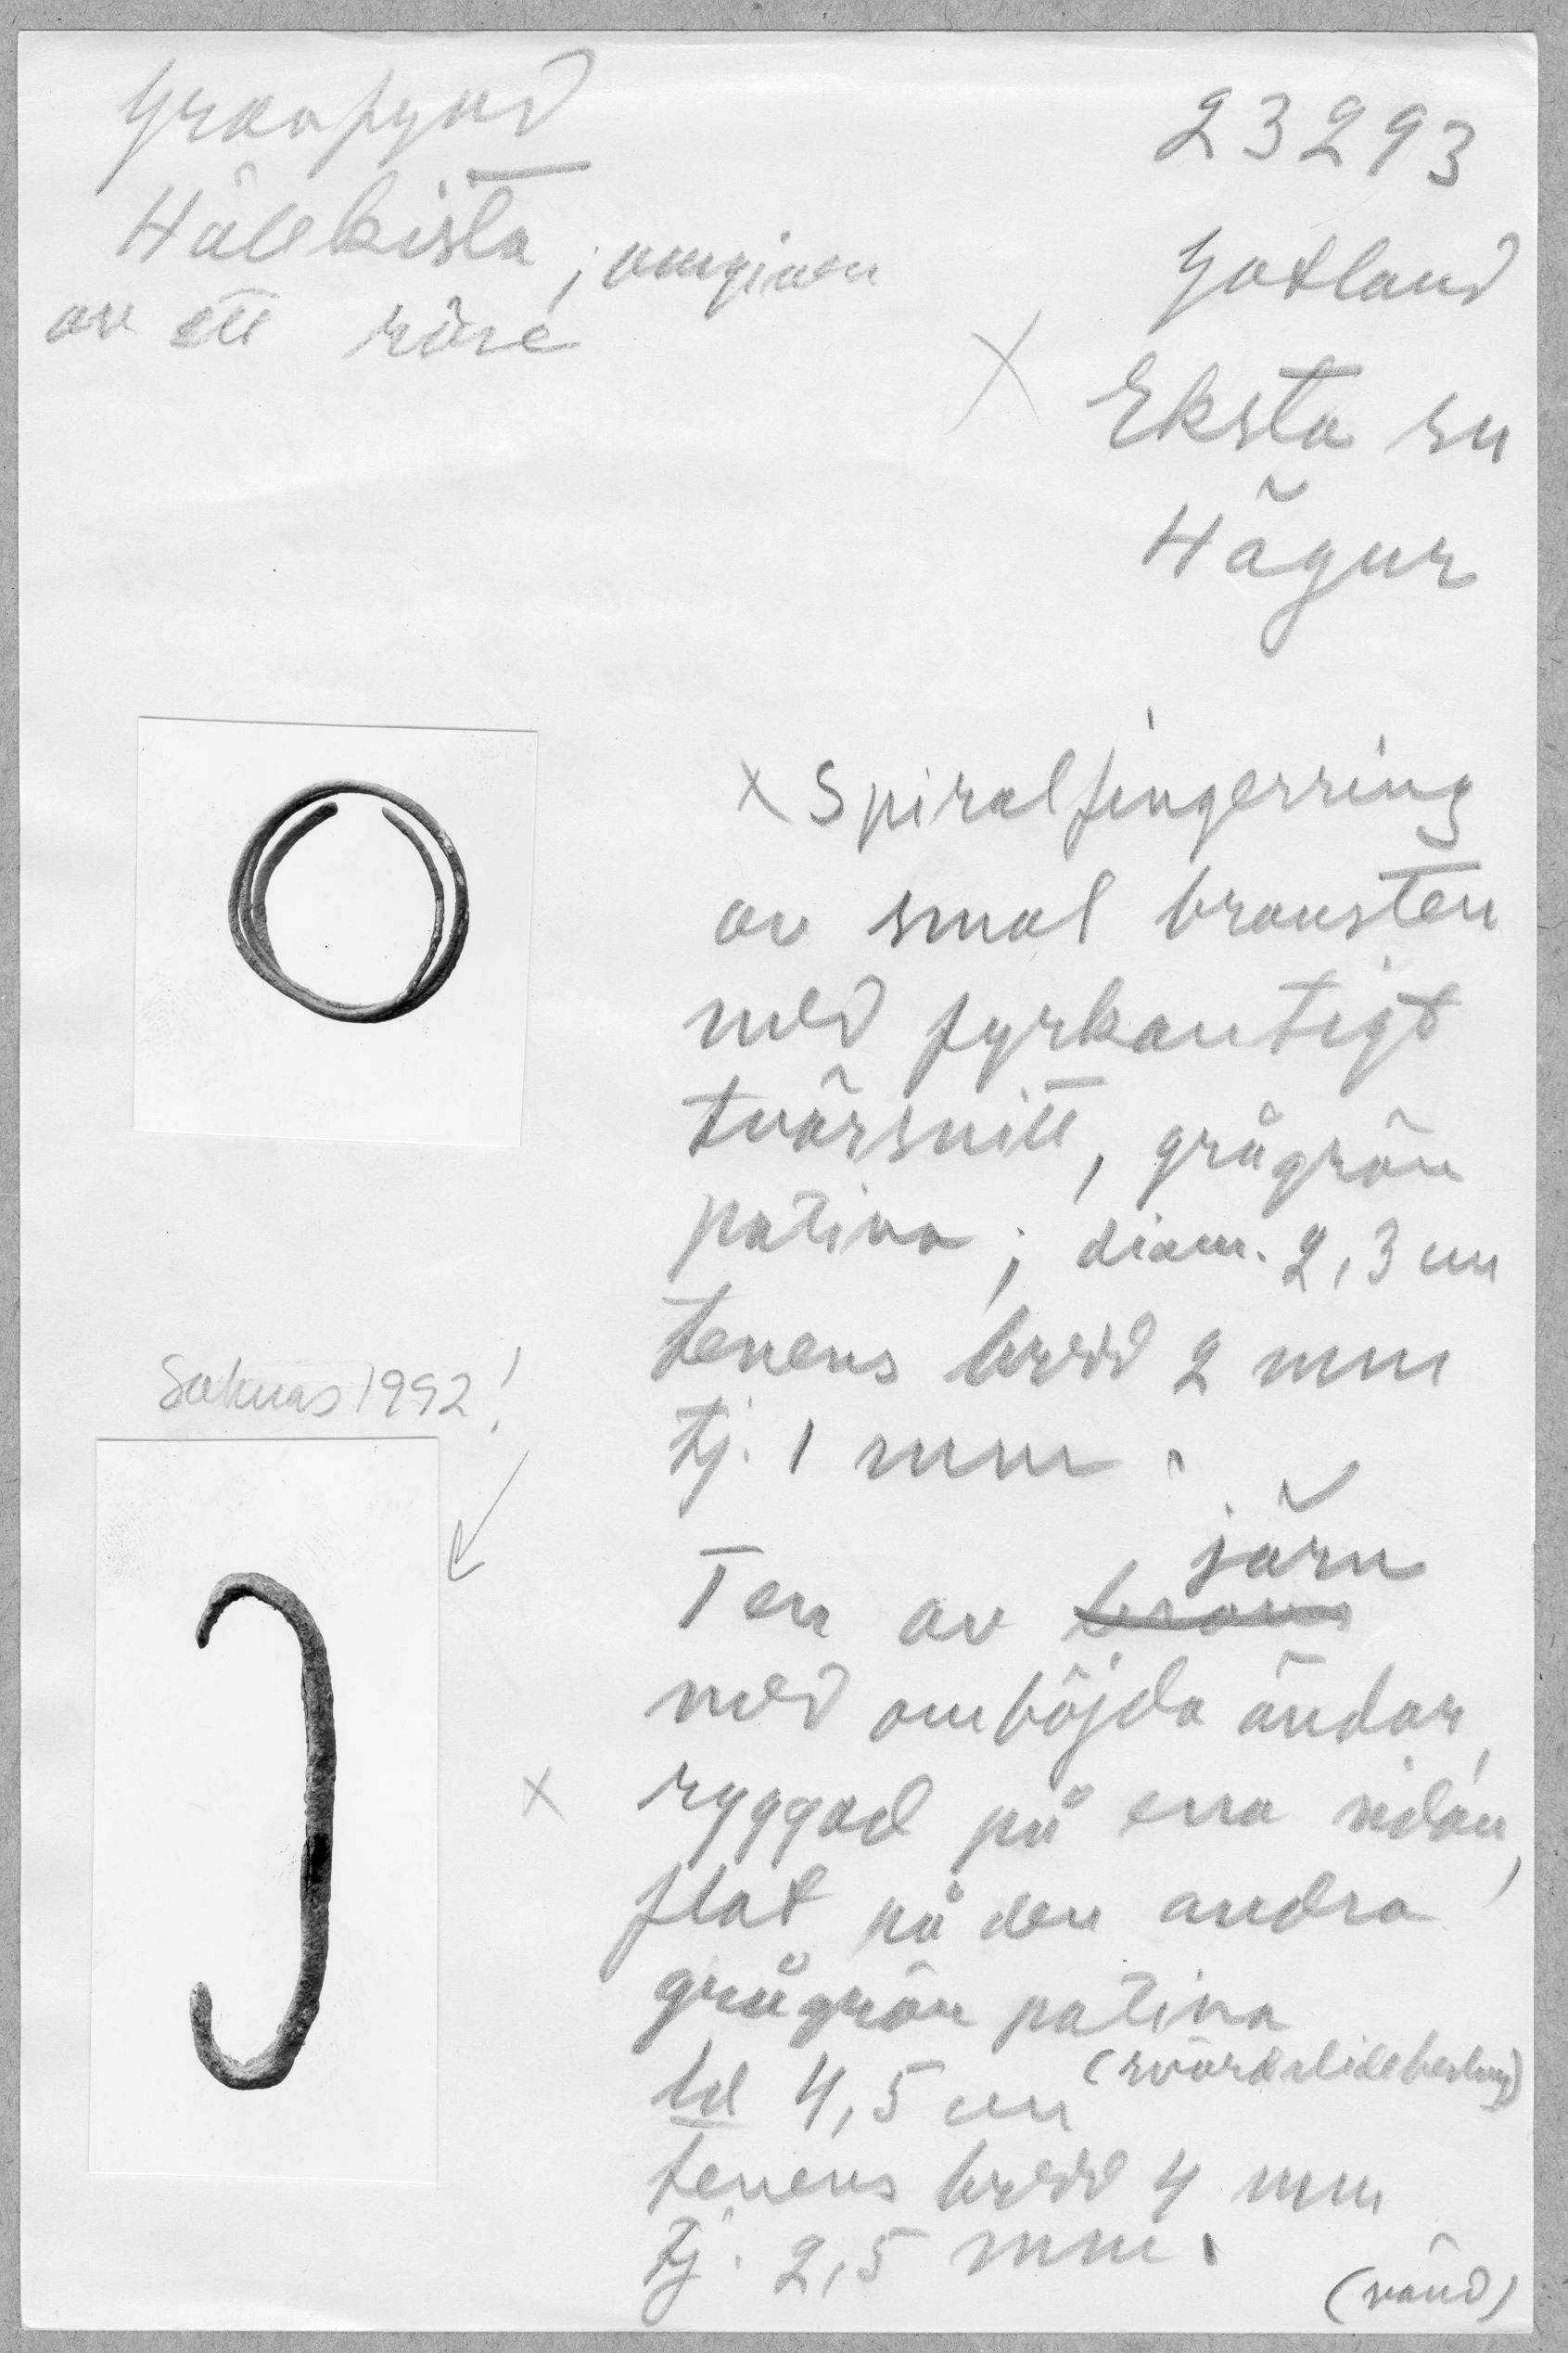 Gravfynd
Hällkista, omgiven
av ett röse
23293
Gotland
X Eksta sn
Hägur
x Spiralfingerring
av smal bronsten
med fyrkantigt
tvärsnitt, grågrön
patina; diam. 2,3 cm
tenens bredd 2 mm
tj. 1 mm.
Saknas 1992!
järn
Ten av brons
med omböjda ändar,
x ryggad på ena sidan,
flat på den andra
grågrön patina
(svärdslidebeslag)
ld 4,5 cm
tenens bredd 4 mm
tj. 2,5 mm.
(vänd)